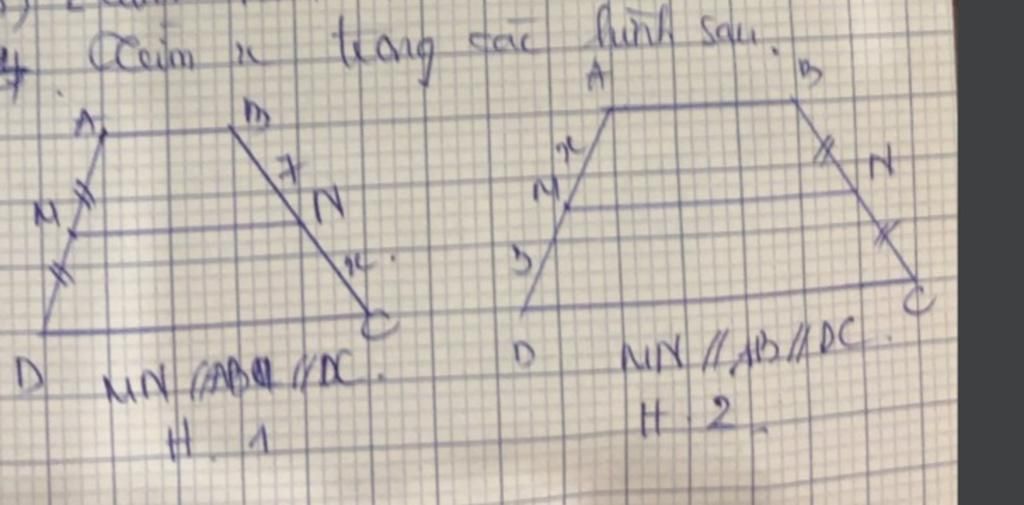 4. Tìm x trong các hình sau.
A B
7
M N
x
D C
MN // AB // DC.
H. 1
A B
x
M N
3
D C
MN // AB // DC.
H. 2